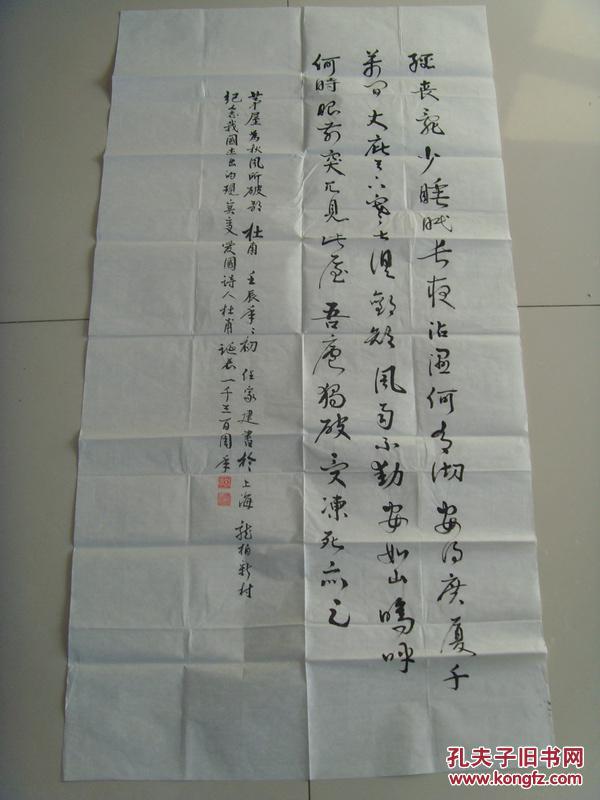 經喪亂少睡眠长夜沾濕何由彻安得廣厦千
萬间大庇天下寒士俱歡颜風雨不動安如山嗚呼
何時眼前突兀見此屋吾庐獨破受凍死亦足
茅屋為秋風所破歌 杜甫 壬辰年々初 任家建書於上海龍柏新村
纪念我國杰出的現實主义愛國詩人杜甫誕辰一千三百周年
孔夫子旧书网
www.kongfz.com